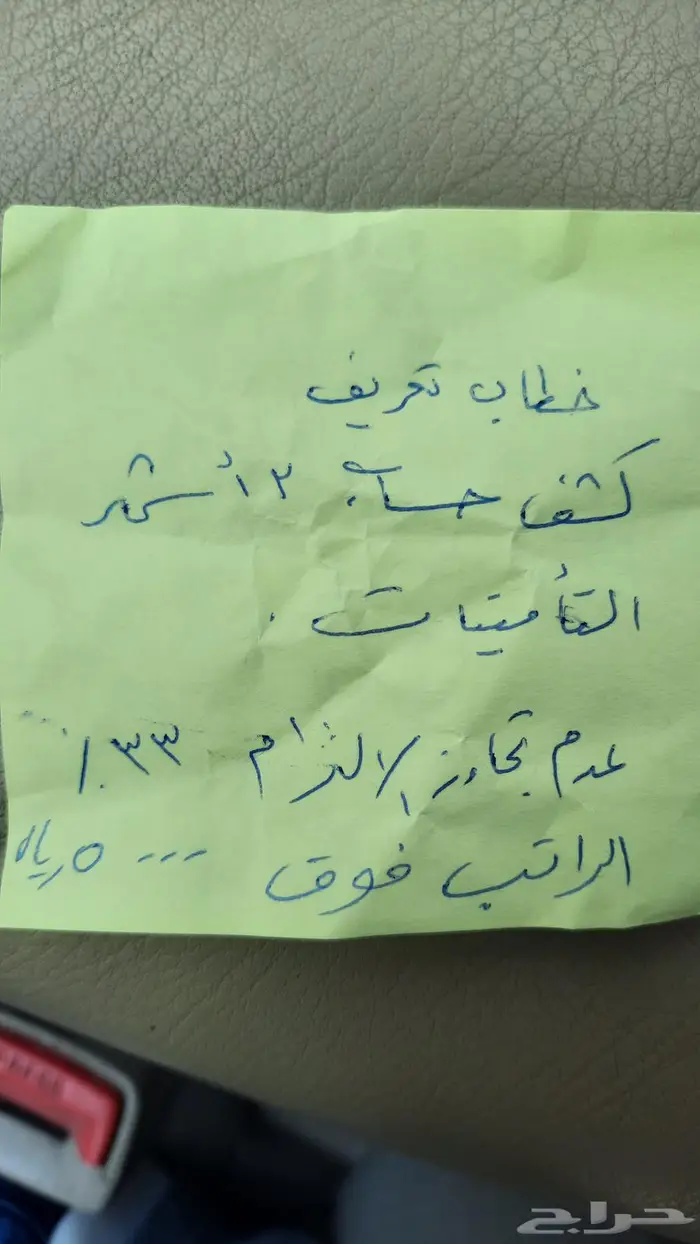 خطاب تعريف
كشف حساب ٣ أشهر
التأمينات .
عدم تجاوز الالتزام ٣٣٪
الراتب فوق ٥٠٠٠ ريال
حراج